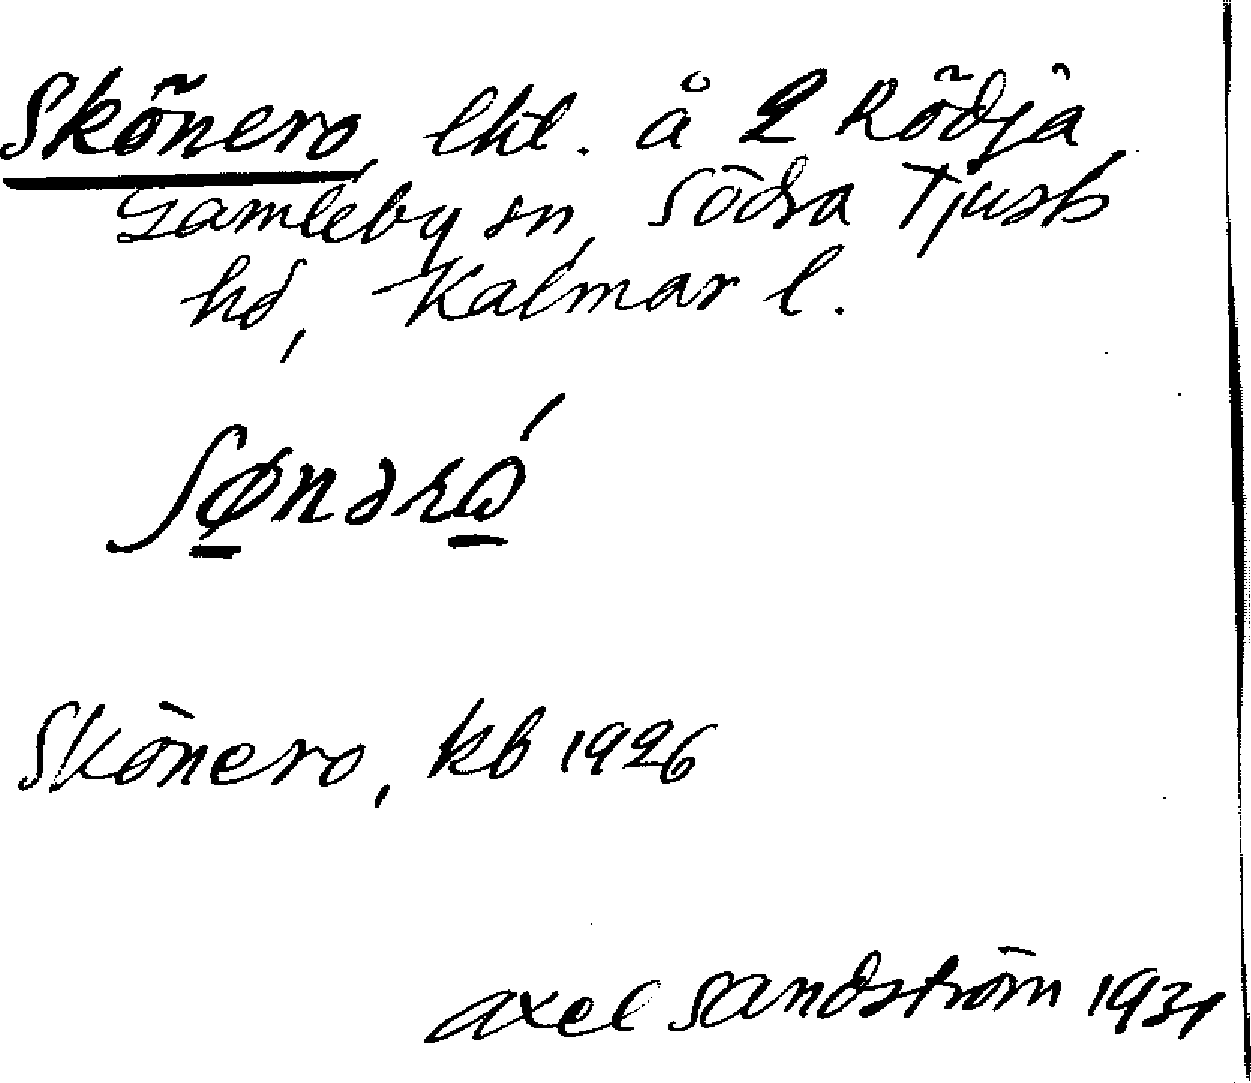 Skönero, lht. å 2 Rödja
Gamleby sn, Södra Tjusts
hd, Kalmar l.
ʃø̱nərώ̱
Skönero, kb 1926
Axel Sandström 1931